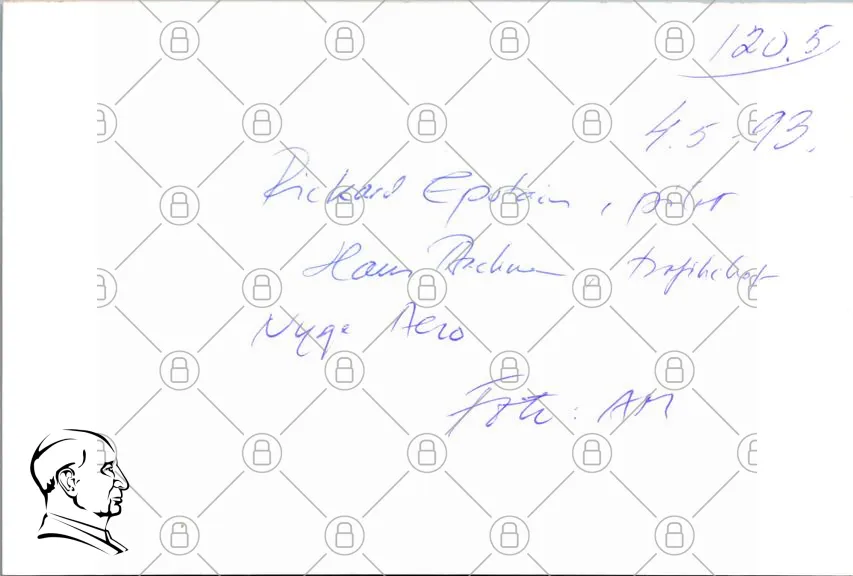 120.5
4.5 -93.
Rickard Epstein, pilot
Hans trafikchef
Nyge Aero
Foto: AM